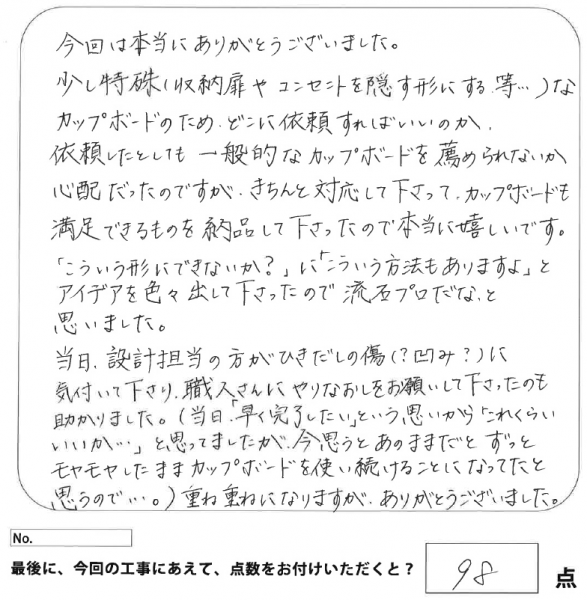 今回は本当にありがとうございました。
少し特殊(収納扉や コンセントを隠す形にする、等…)な
カップボードのため、どこに依頼すればいいのか、
依頼したとしても 一般的なカップボードを薦められないか
心配だったのですが、きちんと対応して下さって、カップボードも
満足できるものを納品して下さったので本当に嬉しいです。
「こういう形にできないか?」に「こういう方法もありますよ」と
アイデアを色々出して下さったので 流石プロだな、と
思いました。
当日、設計担当の方がひきだしの傷(?凹み?)に
気付いて下さり、職人さんに やりなおしをお願いして下さったのも
助かりました。(当日、「早く完了したい」という思いから「これくらい
いいか…」と思ってましたが、今思うとあのままだと ずっと
モヤモヤしたままカップボードを使い続けることになってたと
思うので…。)重ね重ねになりますが、ありがとうございました。
No.
最後に、今回の工事にあえて、点数をお付けいただくと? 98 点